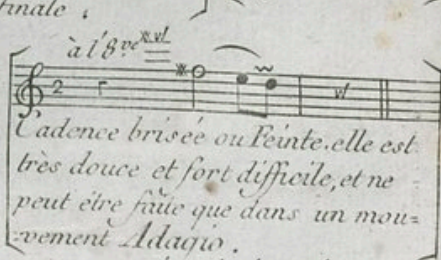 finale.
à l'8.ve
2
Cadence brisée ou Feinte. elle est
très douce et fort difficile, et ne
peut être faite que dans un mou=
=vement Adagio.